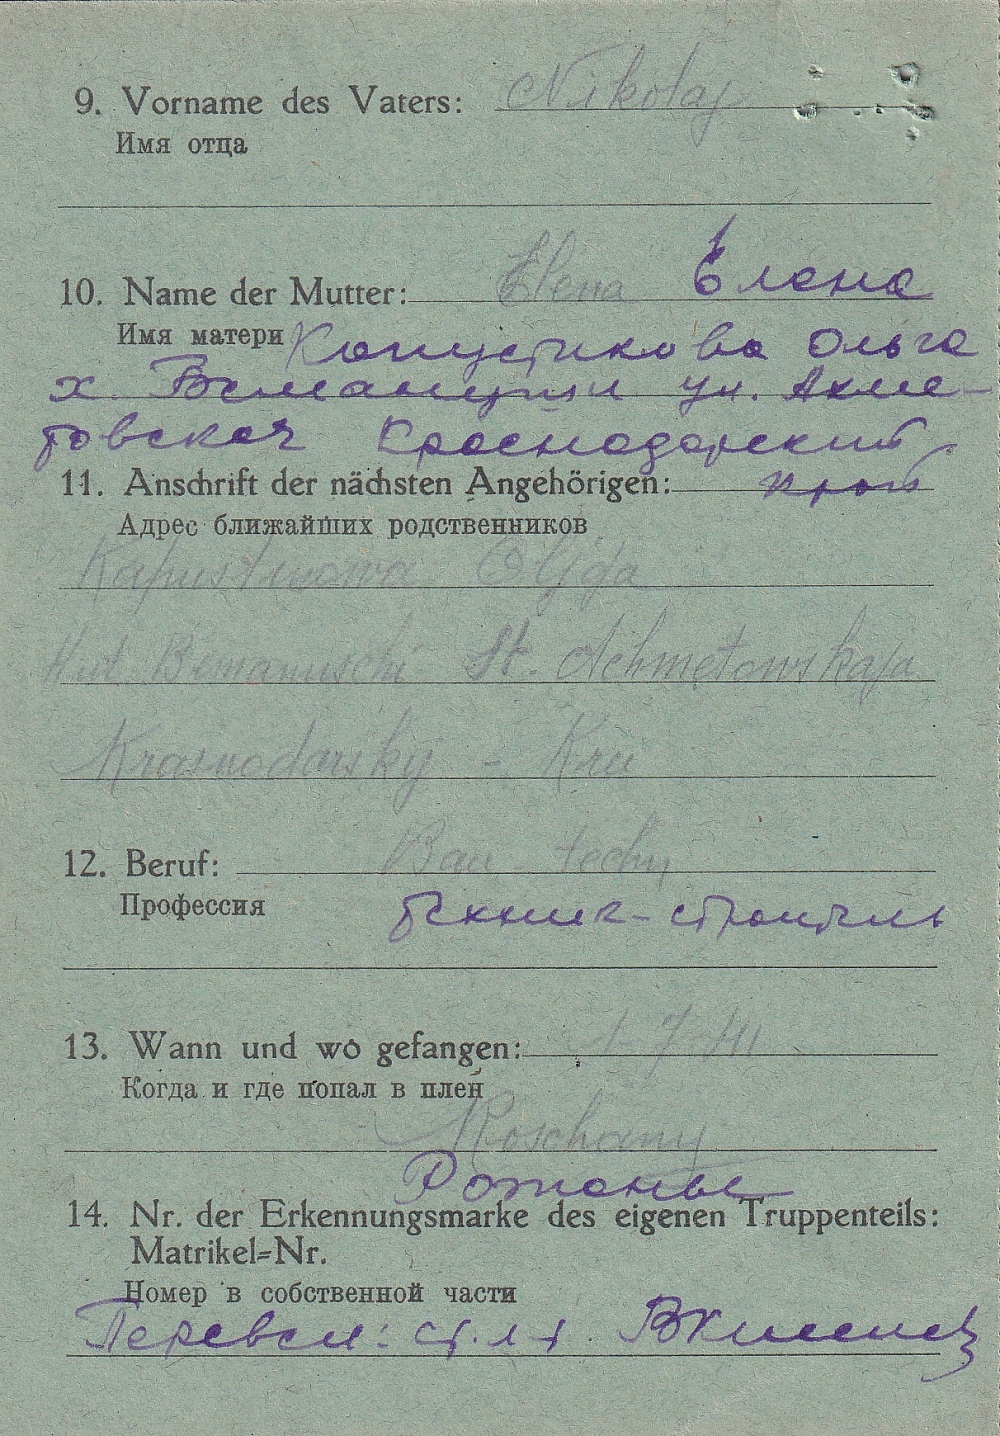 9. Vorname des Vaters: Nikolaj
Имя отца
10. Name der Mutter: Elena Елена
Имя матери Капустикова Ольга
х. ул. Ахме-
товская Краснодарский
11. Anschrift der nächsten Angehörigen: край
Адрес ближайших родственников
Kapustinowa Oljga
St. Achmetowskaja
Krasnodarsky - Krai
12. Beruf: Bau techn
Профессия техник-строитель
13. Wann und wo gefangen: 1 7 41
Когда и где попал в плен
Roschany
Рожаны
14. Nr. der Erkennungsmarke des eigenen Truppenteils:
Matrikel=Nr.
Номер в собственной части
Перевел: ст. л-т.